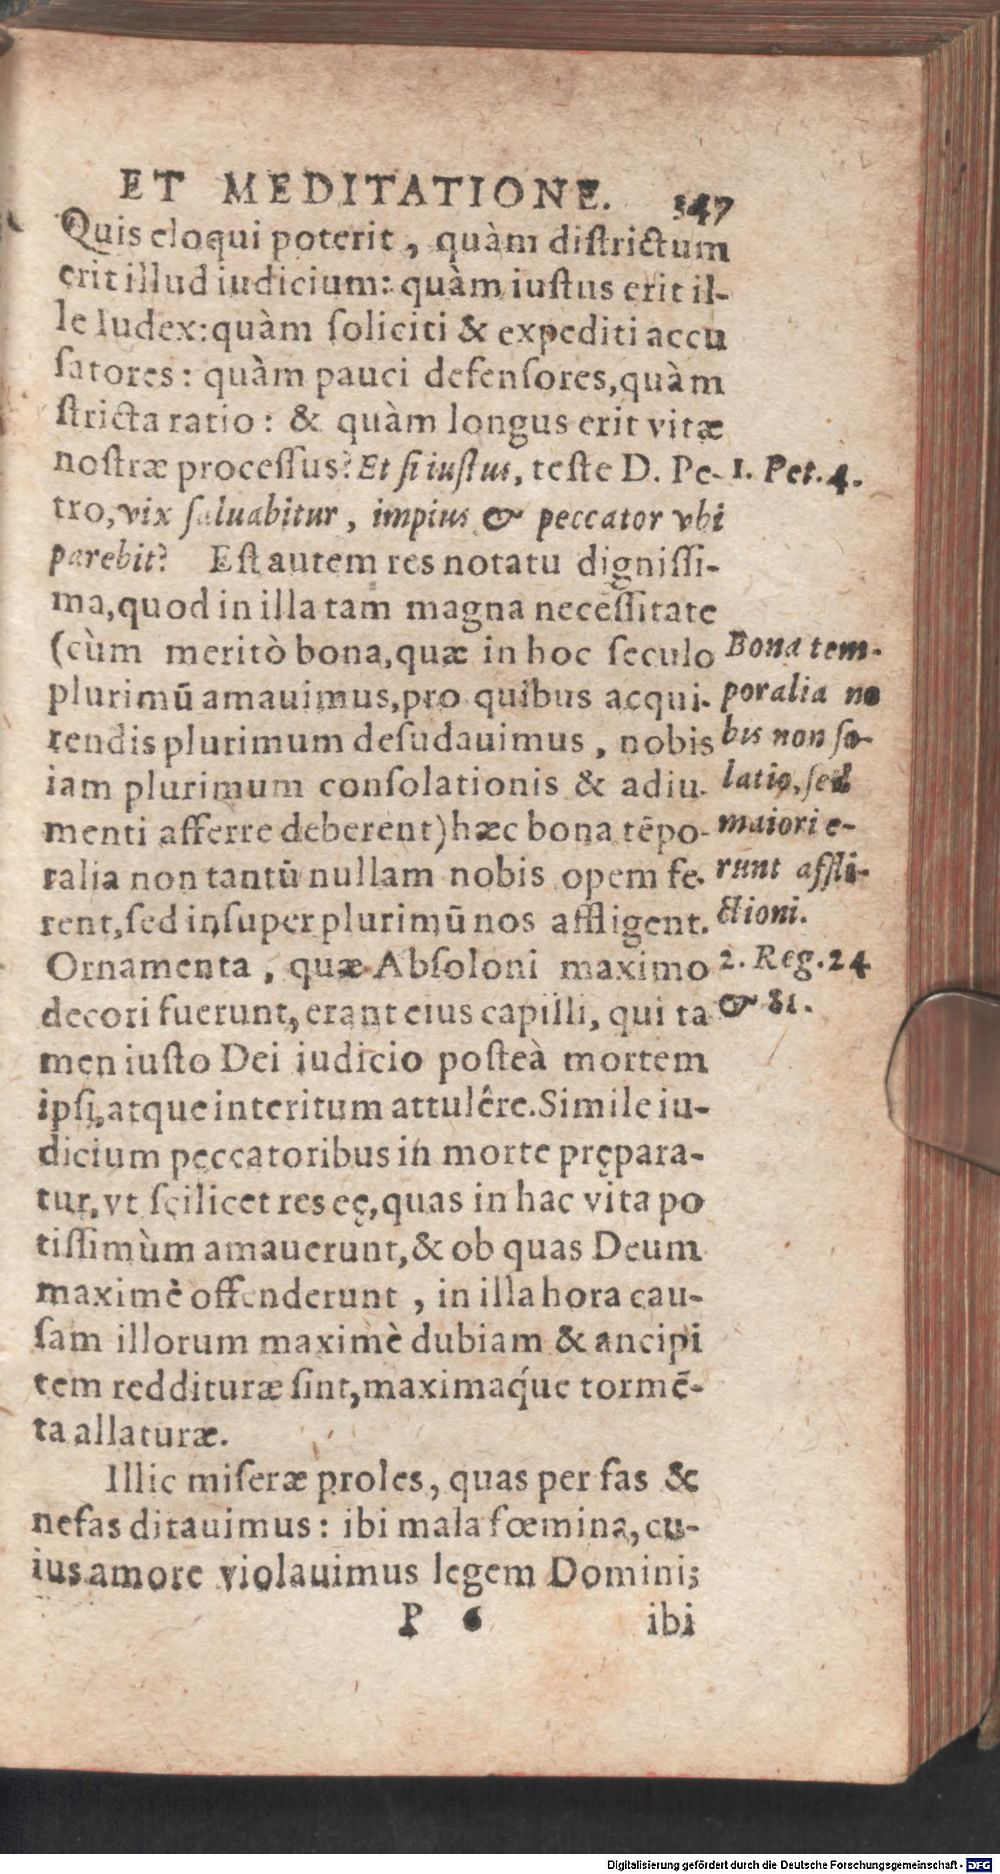 ET MEDITATIONE. 347
Quis eloqui poterit, quàm diſtrictum
erit illud iudicium: quàm iuſtus erit il-
le Iudex: quàm ſoliciti & expediti accu
ſatores: quàm pauci defenſores, quàm
ſtricta ratio: & quàm longus erit vitæ
noſtræ proceſſus? Et ſi iuſtus, teſte D. Pe-
1. Pet. 4.
tro, vix ſaluabitur, impius & peccator vbi
parebit? Eſt autem res notatu digniſſi-
ma, quod in illa tam magna neceſſitate
(cùm meritò bona, quæ in hoc ſeculo
plurimū amauimus, pro quibus acqui-
rendis plurimum deſudauimus, nobis
iam plurimum conſolationis & adiu-
menti afferre deberent) hæc bona tēpo-
ralia non tantū nullam nobis opem fe-
rent, ſed inſuper plurimū nos affligent.
Bona tem-
poralia no
bis non ſo-
latio, ſed
maiori e-
runt affli-
ctioni.
Ornamenta, quæ Abſoloni maximo
decori fuerunt, erant eius capilli, qui ta
2. Reg. 24
& 81.
men iuſto Dei iudicio poſteà mortem
ipſi, atque interitum attulêre. Simile iu-
dicium peccatoribus in morte prępara-
tur, vt ſcilicet res eę, quas in hac vita po
tiſſimùm amauerunt, & ob quas Deum
maximè offenderunt, in illa hora cau-
ſam illorum maximè dubiam & ancipi
tem reddituræ ſint, maximaq́ue tormē-
ta allaturæ.
Illic miſeræ proles, quas per fas &
nefas ditauimus: ibi mala fœmina, cu-
ius amore violauimus legem Domini;
P 6 ibi
Digitalisierung gefördert durch die Deutsche Forschungsgemeinschaft - DFG